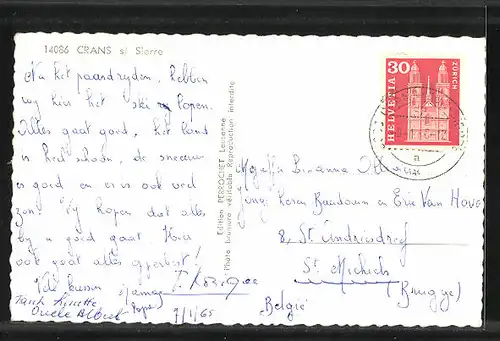 14086 CRANS s/ Sierre
Na het paardrijden, hebben
wij hier het ski lopen.
Alles gaat goed, het land
is heel schoon, de sneeuw
is goed en er is ook veel
zon. Wij hopen dat alles
bij u goed gaat. Hier
ook gaat alles opperbest!
Vele kussen
Tante Ginette
Oncle Albert
9/1/65
Edition PERROCHET Lausanne
Photo bromure véritable Reproduction interdite
HELVETIA 30 ZÜRICH
Mejuffer
Jong. Heren Baudouin en Eric Van Hove
8, St Andriesdreef
St Michiels
(Brugge)
België